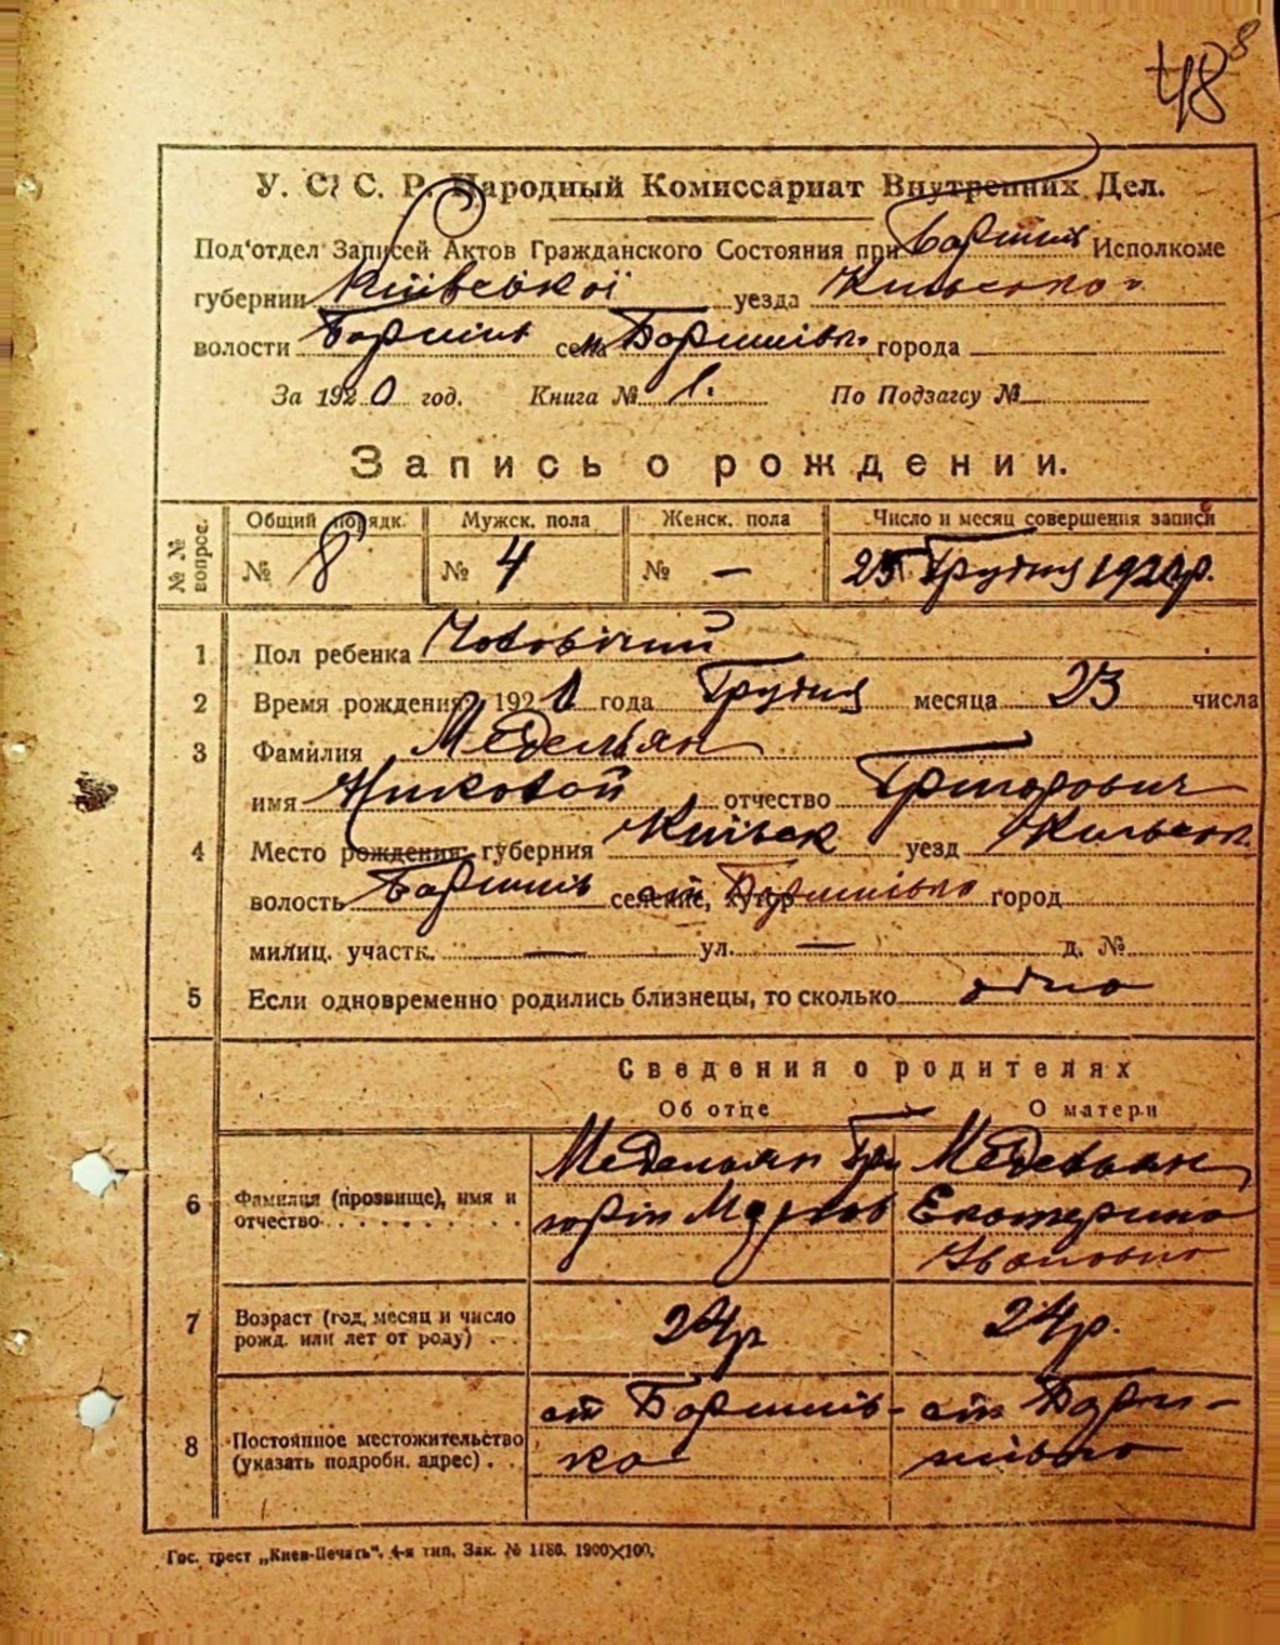 48 8
У. С. С. Р. Народный Комиссариат Внутренних Дел.
Под‘отдел Записей Актов Гражданского Состояния при Борщаг Исполкоме
губернии Київської уезда Київського
волости Борщаг села м Борщагівка города
За 1920 год. Книга № 1. По Подзагсу №
Запись о рождении.
№ № вопрос. Общий порядк. Мужск. пола Женск. пола Число и месяц совершения записи
№ 8 № 4 № — 25 Грудня 1920р.
1 Пол ребенка Чоловічий
2 Время рождения 1920 года Грудня месяца 23 числа
3 Фамилия Медельян
имя Николай отчество Григорович
4 Место рождения: губерния Київськ уезд Київськ
волость селение, хутор город
милиц. участк. — ул. — д. №
5 Если одновременно родились близнецы, то сколько одно
Сведения о родителях
Об отце О матери
6 Фамилия (прозвище), имя и отчество Медельян Гри Медельян
горій Марков Екатерина
Ивановна
7 Возраст (год, месяц и число рожд. или лет от роду) 24р 24р.
8 Постоянное местожительство (указать подробн. адрес)
Гос. трест „Киев-Печать“. 4-я тип. Зак. № 1186. 1900×100.